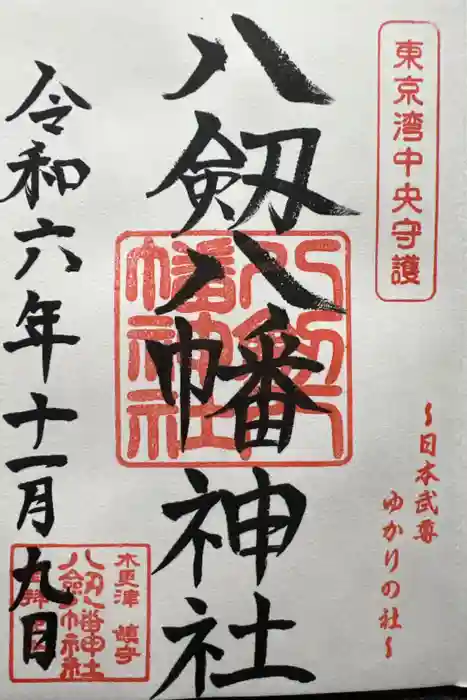 東京湾中央守護
〜日本武尊
ゆかりの社〜
八劔八幡神社
令和六年十一月九日
木更津 鎮守
八劔八幡神社